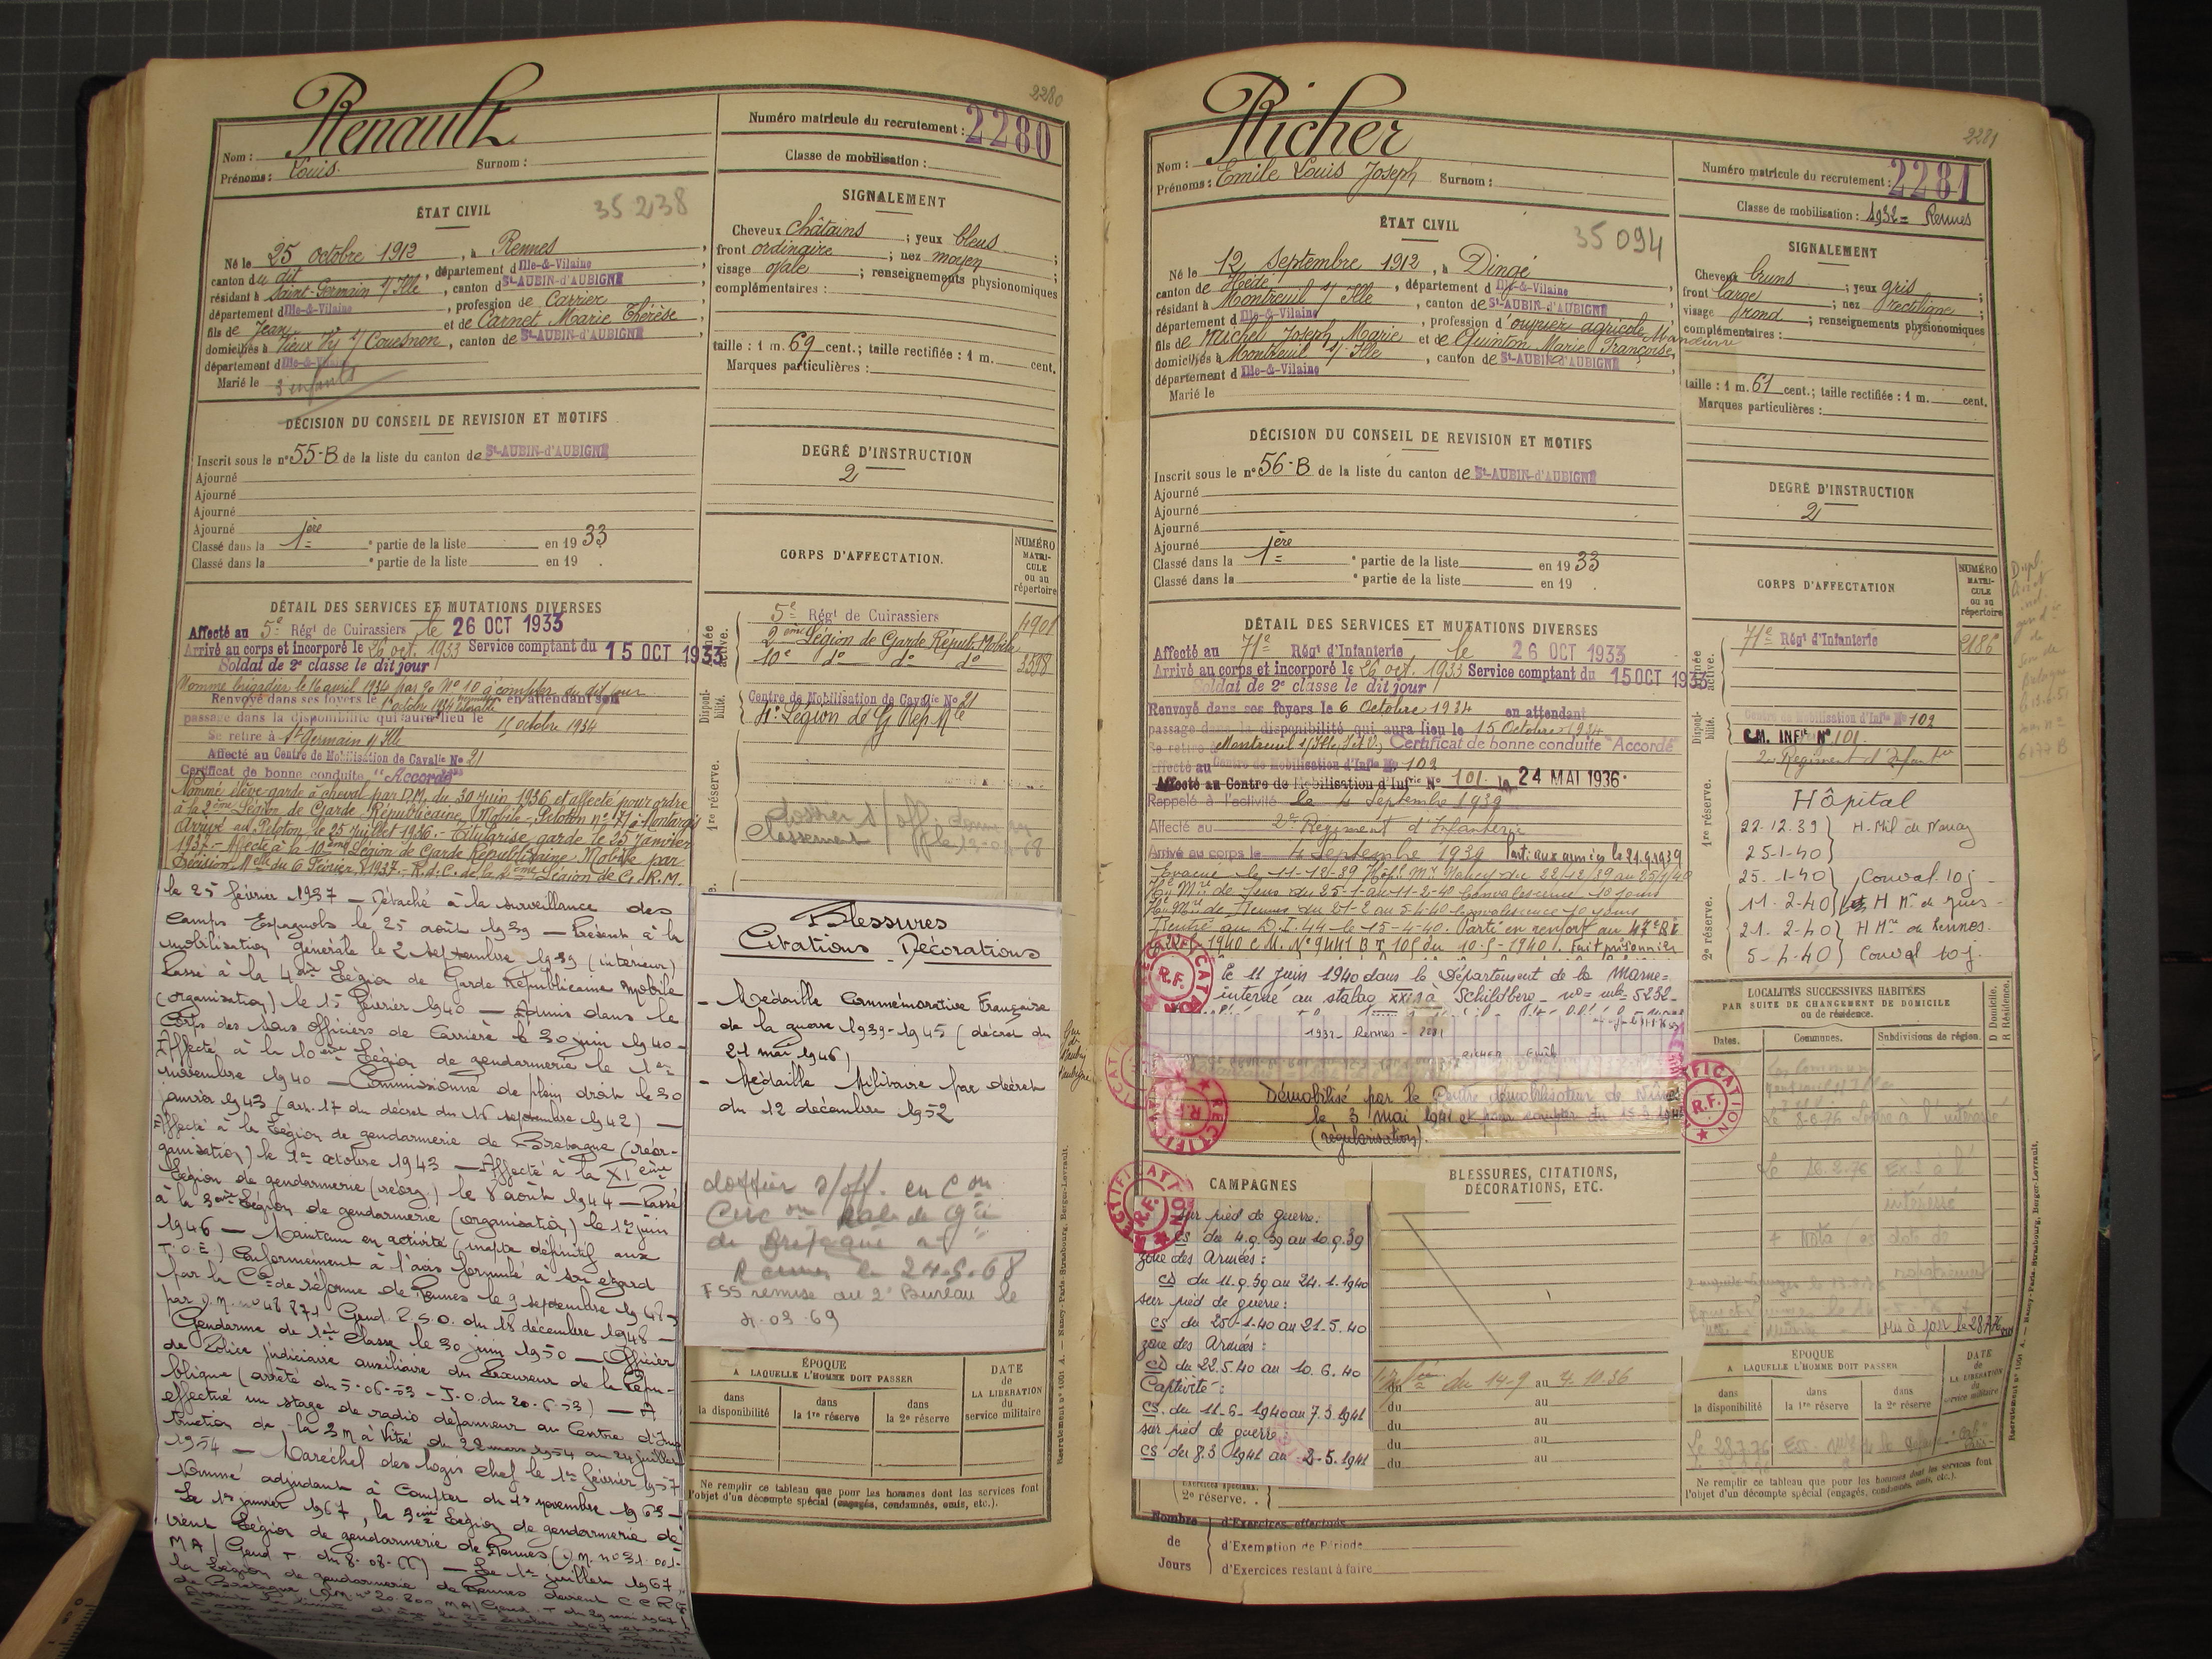 2280
Renault
Nom :
Prénoms : Louis. Surnom :
Numéro matricule du recrutement : 2280
Classe de mobilisation :
ÉTAT CIVIL
35238
Né le 25 octobre 1912, à Rennes
canton du dit, département d Ille-&-Vilaine
résidant à Saint-Germain s/ Ille, canton d St-AUBIN-d'AUBIGNÉ
département d Ille-&-Vilaine, profession de Carrier
fils de Jean et de Carnet Marie Thérèse
domiciliés à Vieux Vy s/ Couesnon, canton de St-AUBIN-d'AUBIGNÉ
département d Ille-&-Vilaine
Marié le 3 enfants
SIGNALEMENT
Cheveux châtains ; yeux bleus
front ordinaire ; nez moyen ;
visage ovale ; renseignements physionomiques
complémentaires :
taille : 1 m. 69 cent.; taille rectifiée : 1 m. cent.
Marques particulières :
DÉCISION DU CONSEIL DE REVISION ET MOTIFS
Inscrit sous le n° 55-B de la liste du canton de St-AUBIN-d'AUBIGNÉ
Ajourné
Ajourné
Ajourné
Ajourné
Classé dans la 1ère partie de la liste en 1933
Classé dans la partie de la liste en 19 .
DEGRÉ D'INSTRUCTION
2
DÉTAIL DES SERVICES ET MUTATIONS DIVERSES
Affecté au 5e Régt de Cuirassiers le 26 OCT 1933
Arrivé au corps et incorporé le 26 oct. 1933 Service comptant du 15 OCT 1933
Soldat de 2e classe le dit jour
Nommé brigadier le 16 avril 1934 par No 10 à compter du dit jour
Renvoyé dans ses foyers le 1 octobre 1934 en attendant son
passage dans la disponibilité qui aura lieu le 15 octobre 1934
Se retire à St Germain s/ Ille
Affecté au Centre de Mobilisation de Cavalie No 21
Certificat de bonne conduite "Accordé"
Nommé élève-garde à cheval par D.M. du 30 juin 1936 et affecté pour ordre
à la 2ème Légion de Garde Républicaine Mobile - Peloton n° 71 à Montargis
Arrivé au Peloton le 25 juillet 1936. - Titularisé garde le 25 janvier
1937. - Affecté à la 10ème Légion de Garde Républicaine Mobile par
Décision Melle du 6 Février 1937. - R. d. C. de la 2ème Légion de G. R.M.
le 25 février 1937 — Détaché à la surveillance des
camps Espagnols le 25 août 1939 — Présent à la
mobilisation générale le 2 septembre 1939 (intérieur)
Passé à la 4ème Légion de Garde Républicaine Mobile
(organisation) le 1er février 1940 — Admis dans le
Corps des Sous Officiers de Carrière le 30 juin 1940 -
Affecté à la 10ème Légion de gendarmerie le 1er
novembre 1940 — Commissionné de plein droit le 30
janvier 1943 (art. 17 du décret du 16 septembre 1942) —
Affecté à la Légion de gendarmerie de Bretagne (réor-
ganisation) le 1er octobre 1943 — Affecté à la XIème
Légion de gendarmerie (réorg.) le 8 août 1944 — Passé
à la 3ème Légion de gendarmerie (organisation) le 1er juin
1946 — Maintenu en activité (inapte définitif aux
T.O.E) Conformément à l'avis formulé à son égard
par la Con de réforme de Rennes le 9 septembre 1948
par D.M. n° 48 871 Gend. P.S.O. du 18 décembre 1948 —
Gendarme de 1ère classe le 30 juin 1950 — Officier
de Police judiciaire auxiliaire du Procureur de la Répu-
blique (arrêté du 5-06-53 - J.O. du 20.6.53) — A
effectué un stage de radio dépanneur au Centre d'Ins
truction de la 3 M à Vitré du 22 mars 1954 au 24 juillet
1954 — Maréchal des logis Chef le 1er février 1957
Nommé adjudant à compter du 1er novembre 1963 —
Le 1er janvier 1967, la 3ème Légion de gendarmerie de
vient Légion de gendarmerie de Rennes (D.M. n° 31.001-
MA/ Gend. T. du 8.08.66) — Le 1er juillet 1967,
la Légion de gendarmerie de Rennes devient C C R G
de Bretagne (DM n° 20.800 MA/ Gend. T du 29 mai 1967)
CORPS D'AFFECTATION.
NUMÉRO MATRI-CULE ou au répertoire
Armée active.
5e Régt de Cuirassiers 4901
2ème Légion de Garde Républ. Mobile
10e do do do 3598
Disponi-bilité.
Centre de Mobilisation de Cavalie No 21
4e Légion de G Rep Mle
1re réserve.
Blessures
Citations - Décorations
- Médaille Commémorative Française
de la guerre 1939-1945 (décret du
21 mai 1946)
- Médaille Militaire par décret
du 12 décembre 1952
dossier s/off. en Con
Circon Rale de Gie
de Bretagne à
Rennes le 24-5-68
FSS remise au 2e Bureau le
ÉPOQUE
A LAQUELLE L'HOMME DOIT PASSER
dans la disponibilité
dans la 1re réserve
dans la 2e réserve
DATE de LA LIBÉRATION du service militaire
Ne remplir ce tableau que pour les hommes dont les services font
l'objet d'un décompte spécial (engagés, condamnés, omis, etc.).
Recrutement n° 1001 A. — Nancy-Paris-Strasbourg, Berger-Levrault.
2281
Richer
Nom :
Prénoms : Emile Louis Joseph Surnom :
Numéro matricule du recrutement : 2281
Classe de mobilisation : 1932 = Rennes
ÉTAT CIVIL
35094
Né le 12 septembre 1912, à Dingé
canton de Hédé, département d Ille-&-Vilaine
résidant à Montreuil s/ Ille, canton de St-AUBIN-d'AUBIGNÉ
département d Ille-&-Vilaine, profession d'ouvrier agricole Manœuvre
fils de Michel Joseph Marie et de Quinton Marie Françoise,
domiciliés à Montreuil s/ Ille, canton de St-AUBIN-d'AUBIGNÉ
département d Ille-&-Vilaine
Marié le
SIGNALEMENT
Cheveux bruns ; yeux gris ;
front large ; nez rectiligne ;
visage rond ; renseignements physionomiques
complémentaires :
taille : 1 m. 61 cent.; taille rectifiée : 1 m. cent.
Marques particulières :
DÉCISION DU CONSEIL DE REVISION ET MOTIFS
Inscrit sous le n° 56-B de la liste du canton de St-AUBIN-d'AUBIGNÉ
Ajourné
Ajourné
Ajourné
Ajourné
Classé dans la 1ère partie de la liste en 1933
Classé dans la partie de la liste en 19 .
DEGRÉ D'INSTRUCTION
2
DÉTAIL DES SERVICES ET MUTATIONS DIVERSES
Affecté au 71e Régt d'Infanterie le 26 OCT 1933
Arrivé au corps et incorporé le 26 oct. 1933 Service comptant du 15 OCT 1933
Soldat de 2e classe le dit jour
Renvoyé dans ses foyers le 6 Octobre 1934 en attendant
passage dans la disponibilité qui aura lieu le 15 Octobre 1934
Se retire à Montreuil s/ Ille (I.&V.) Certificat de bonne conduite "Accordé"
Affecté au Centre de Mobilisation d'Infie No 102
Affecté au Centre de Mobilisation d'Infrie No 101. le 24 MAI 1936.
Rappelé à l'activité le 4 Septembre 1939
Affecté au 2e Régiment d'Infanterie
Arrivé au corps le 4 Septembre 1939 Parti aux armées le 21.9.1939
Evacué le 11-12-39 Hôpl Mre Nancy du 22/12/39 au 25/1/40
Hal Mre de du 25-1-au 11-2-40 Convalescence 10 jours
Hal Mre de Rennes du 21-2 au 5-4-40 Convalescence 10 jours
Rentré au D.I. 44 le 15-4-40. Parti en renfort au 47e R.I
1940 C.M. N° 9441 B T 105 du 10-5-1940. Fait prisonnier
le 11 juin 1940 dans le Département de la Marne =
interné au stalag XXI à Schildberg - n° mle 5232-
1932 - Rennes - 2281
RICHER Emile
Démobilisé par le Centre démobilisateur de Nîmes
le 3 mai 1941
(régularisation).
RECTIFICATION R.F.
CORPS D'AFFECTATION
NUMÉRO MATRI-CULE ou au répertoire
Armée active.
71e Régt d'Infanterie 2186
Disponi-bilité.
Centre de Mobilisation d'Infie No 102
C.M. INFie No 101.
2e Régiment d'Infantie
1re réserve.
Hôpital
22.12.39 } H. Mil de Nancy
25-1-40 }
25.1-40 } Conval. 10 j -
2e réserve.
11.2-40 }
21.2-40 } H Mre de Rennes.
5-4-40 } Conval 10 j.
LOCALITÉS SUCCESSIVES HABITÉES
PAR SUITE DE CHANGEMENT DE DOMICILE
ou de résidence.
Dates.
Communes.
Subdivisions de région.
D Domicile. R Résidence.
Mis à jour le 28.7.76
CAMPAGNES
sur pied de guerre :
CS du 4.9.39 au 10.9.39
zone des Armées :
CD du 11.9.39 au 24.1.1940
sur pied de guerre :
CS du 25-1-40 au 21.5.40
zone des Armées :
CD du 22.5.40 au 10.6.40
Captivité :
CS. du 11-6-1940 au 7.3.1941
sur pied de guerre :
CS du 8.3 1941 au 2-5.1941
BLESSURES, CITATIONS,
DÉCORATIONS, ETC.
du 14.9 au 4-10.36
du au
du au
du au
du au
du au
2e réserve. .
Nombre de Jours
d'Exercices effectués
d'Exemption de Période
d'Exercices restant à faire
ÉPOQUE
A LAQUELLE L'HOMME DOIT PASSER
dans la disponibilité
dans la 1re réserve
dans la 2e réserve
DATE de LA LIBÉRATION du service militaire
Ne remplir ce tableau que pour les hommes dont les services font
l'objet d'un décompte spécial (engagés, condamnés, omis, etc.).
Recrutement n° 1001 A. — Nancy-Paris-Strasbourg, Berger-Levrault.